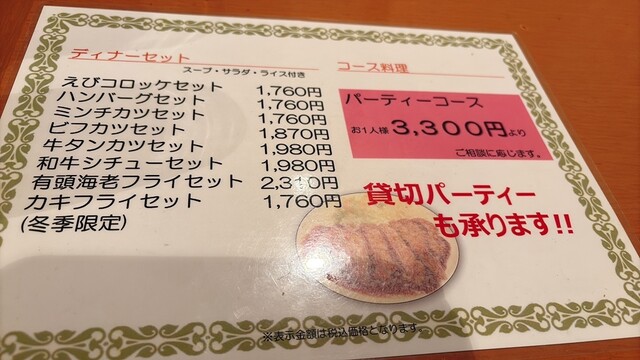 ディナーセット
スープ・サラダ・ライス付き
えびコロッケセット 1,760円
ハンバーグセット 1,760円
ミンチカツセット 1,760円
ビフカツセット 1,870円
牛タンカツセット 1,980円
和牛シチューセット 1,980円
有頭海老フライセット 2,310円
カキフライセット 1,760円
(冬季限定)
コース料理
パーティーコース
お1人様 3,300円より
ご相談に応じます。
貸切パーティー
も承ります!!
※表示金額は税込価格となります。